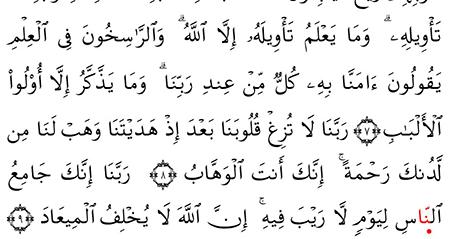 تَأْوِيلِهِۦۗ وَمَا يَعْلَمُ تَأْوِيلَهُۥٓ إِلَّا ٱللَّهُۗ وَٱلرَّٰسِخُونَ فِى ٱلْعِلْمِ
يَقُولُونَ ءَامَنَّا بِهِۦ كُلٌّ مِّنْ عِندِ رَبِّنَاۗ وَمَا يَذَّكَّرُ إِلَّآ أُو۟لُوا۟
ٱلْأَلْبَٰبِ ﴿٧﴾ رَبَّنَا لَا تُزِغْ قُلُوبَنَا بَعْدَ إِذْ هَدَيْتَنَا وَهَبْ لَنَا مِن
لَّدُنكَ رَحْمَةًۚ إِنَّكَ أَنتَ ٱلْوَهَّابُ ﴿٨﴾ رَبَّنَآ إِنَّكَ جَامِعُ
ٱلنَّاسِ لِيَوْمٍ لَّا رَيْبَ فِيهِۚ إِنَّ ٱللَّهَ لَا يُخْلِفُ ٱلْمِيعَادَ ﴿٩﴾